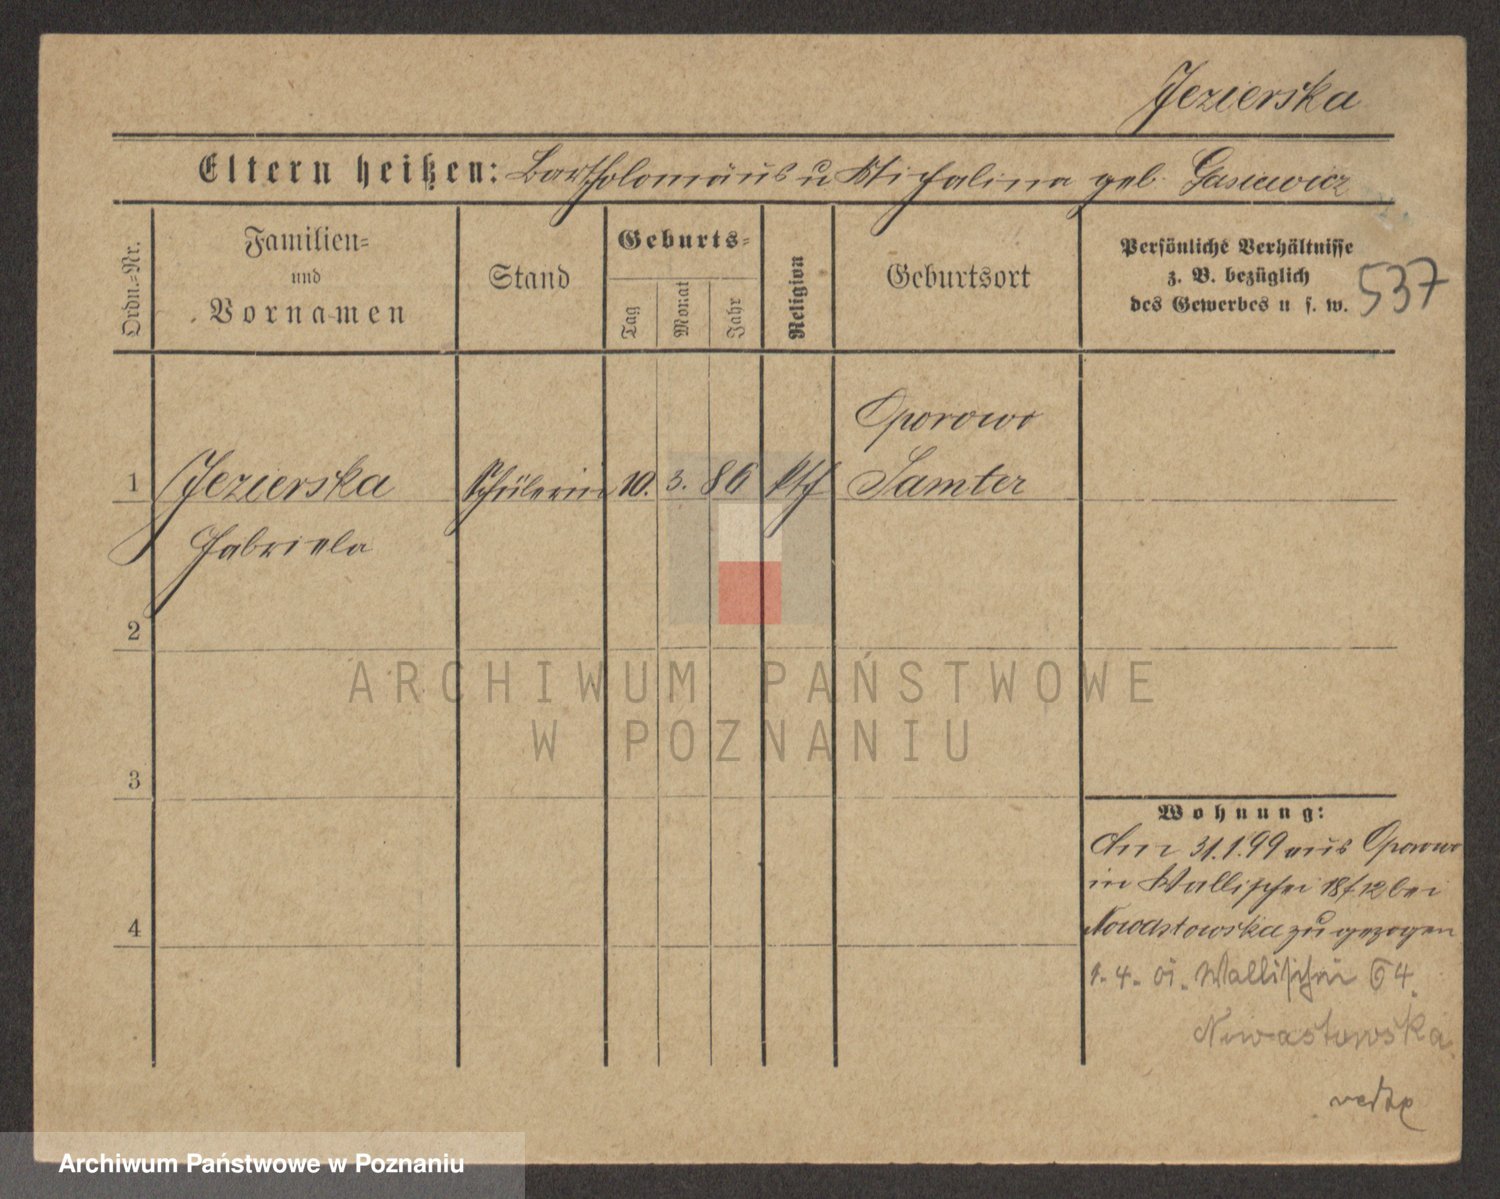 Jezierska
Eltern heißen: Bartholomäus u Michalina geb. Gasiewicz
Ordn.-Nr.
Familien-
und
Vornamen
Stand
Geburts-
Tag
Monat
Jahr
Religion
Geburtsort
Persönliche Verhältnisse
z. B. bezüglich
des Gewerbes u s. w.
537
Oporowo
1 Jezierska Schülerin 10. 3. 86 kth Samter
Gabriela
2
3
4
Wohnung:
Am 31.1.99 aus Oporowo
in Wallischei 18/12 bei
Nowastowska zu gezogen
1. 4. 01. Wallischei 64.
Nowastowska
ARCHIWUM PAŃSTWOWE
W POZNANIU
Archiwum Państwowe w Poznaniu